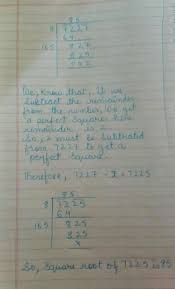 85
8 7227
64
165 827
825
002
We, Know that, if we
subtract the remainder
from the number, we get
a perfect square. here
remainder is 2.
So, 2 must be subtracted
from 7227 to get a
perfect square.
Therefore, 7227 - 2 = 7225
85
8 7225
64
165 825
825
x
So, square root of 7225 is 85